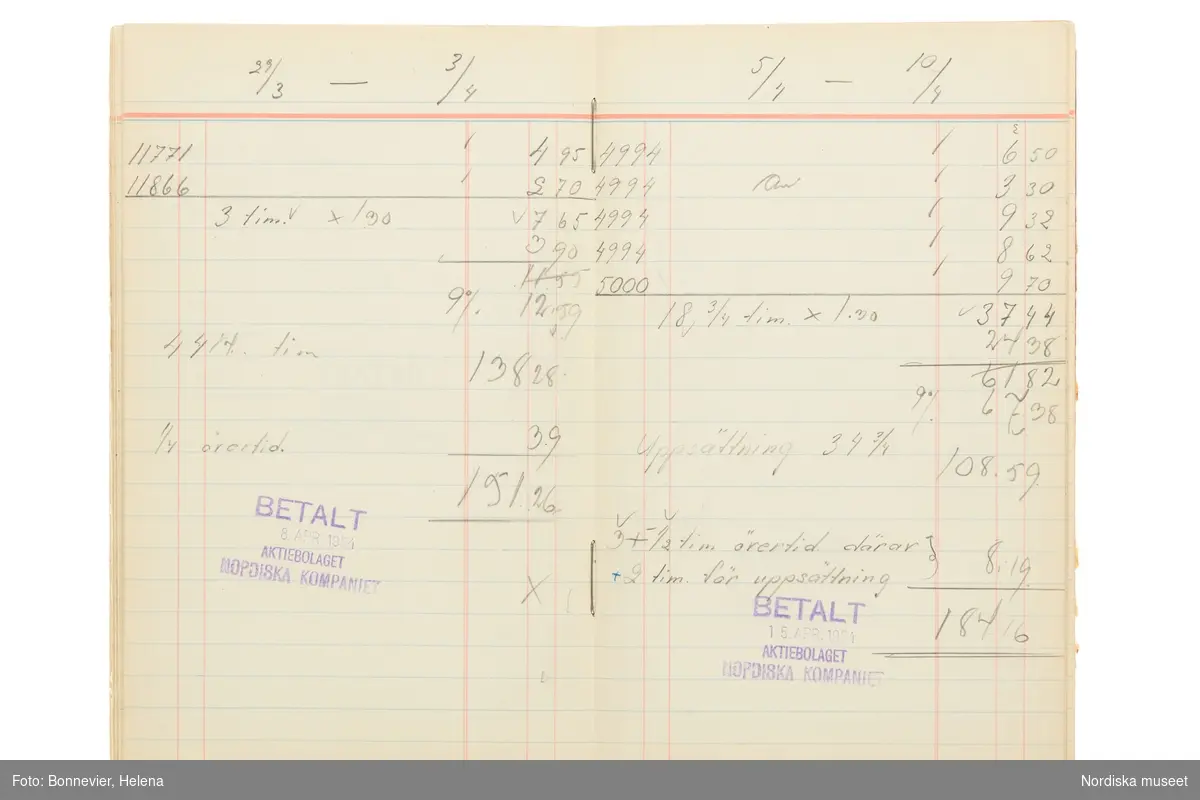 29/3 — 3/4
11771 1 4 95
11866 1 2 70
3 tim. x 1.30 7 65
3 90
11 55
9% 12.59
44 1/4. tim 138 28.
1/4 övertid. 39
151.26
BETALT
8. APR. 1954
AKTIEBOLAGET
NORDISKA KOMPANIET
X
5/4 — 10/4
4994 1 6 50
4994 1 3 30
4994 1 9 32
4994 1 8 62
5000 1 9 70
18 3/4 tim. x 1.30 37 44
24 38
61 82
9% 67 38
Uppsättning 34 3/4 108.59.
3 + 1/2 tim övertid därav } 8.19.
+2 tim. för uppsättning
184 16
BETALT
15. APR. 1954
AKTIEBOLAGET
NORDISKA KOMPANIET
Foto: Bonnevier, Helena
Nordiska museet